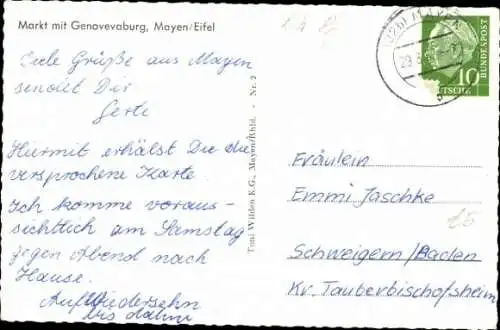 Markt mit Genovevaburg, Mayen/Eifel
Viele Grüße aus Mayen
sendet Dir
Gerte
Hiermit erhälst Du die
versprochene Karte.
Ich komme voraus-
sichtlich am Samstag
gegen Abend nach
Hause.
Auf Wiedersehn
bis dahin
Toni Wilden K.G., Mayen/Rhld. - Nr. 2
MAYEN
10
DEUTSCHE
BUNDESPOST
Fräulein
Emmi Jaschke
Schweigern/Baden
Kr. Tauberbischofsheim